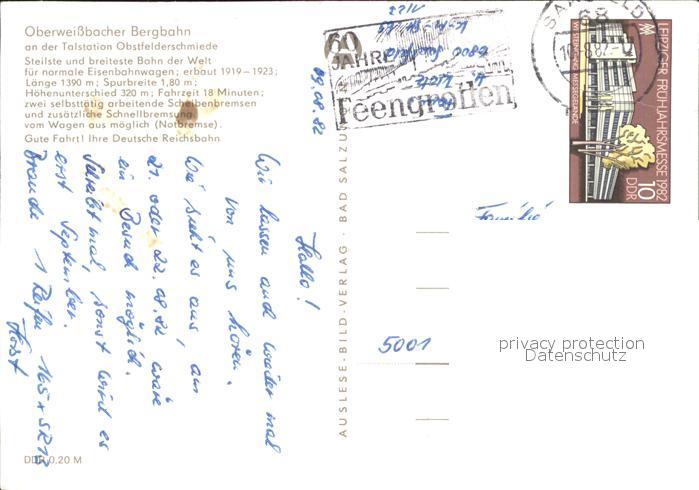 Oberweißbacher Bergbahn
an der Talstation Obstfelderschmiede
Steilste und breiteste Bahn der Welt
für normale Eisenbahnwagen; erbaut 1919–1923;
Länge 1390 m; Spurbreite 1,80 m;
Höhenunterschied 320 m; Fahrzeit 18 Minuten;
zwei selbsttätig arbeitende Scheibenbremsen
und zusätzliche Schnellbremsung
vom Wagen aus möglich (Notbremse).
Gute Fahrt! Ihre Deutsche Reichsbahn
60
JAHRE
Feengrotten
SAALFELD
68
LEIPZIGER FRÜHJAHRSMESSE 1982
WESTEINGANG MESSEGELÄNDE
DDR 10
09.08.82
Hallo!
Wir lassen auch wieder mal
von uns hören.
Wie sieht es aus, am
21. oder 22.08.82 wäre
ein Besuch möglich.
Schreibt mal, sonst wird es
erst September.
Brauche 1 Reifen 165 x SR13
Horst
AUSLESE-BILD-VERLAG · BAD SALZU
Familie
5001
privacy protection
Datenschutz
DDR 0,20 M